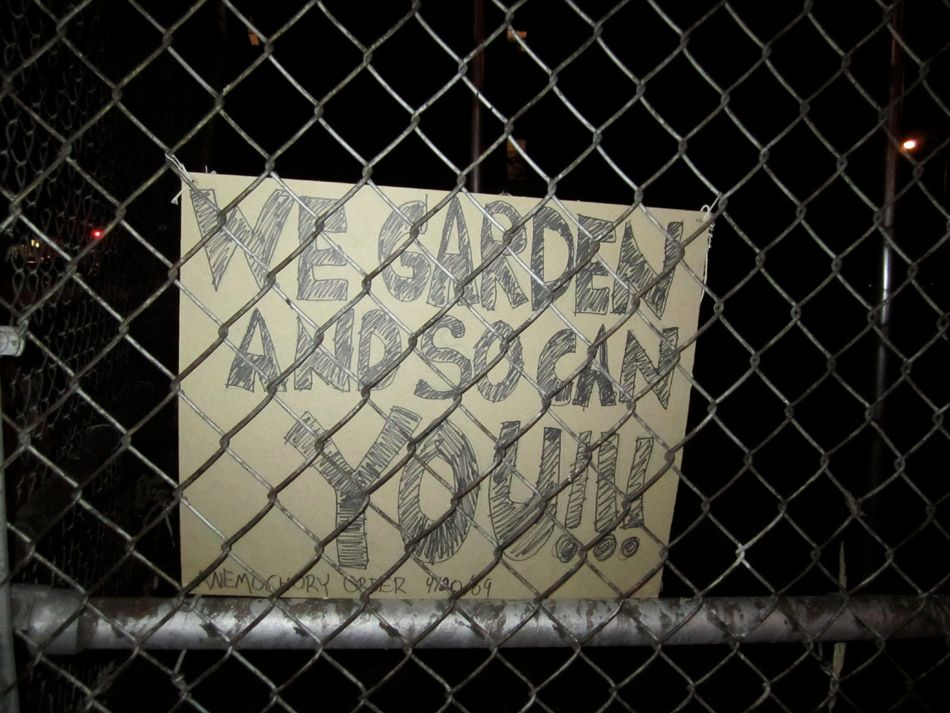 WE GARDEN
AND SO CAN
YOU!!!
ANEMOCHORY ORDER 4/20/09